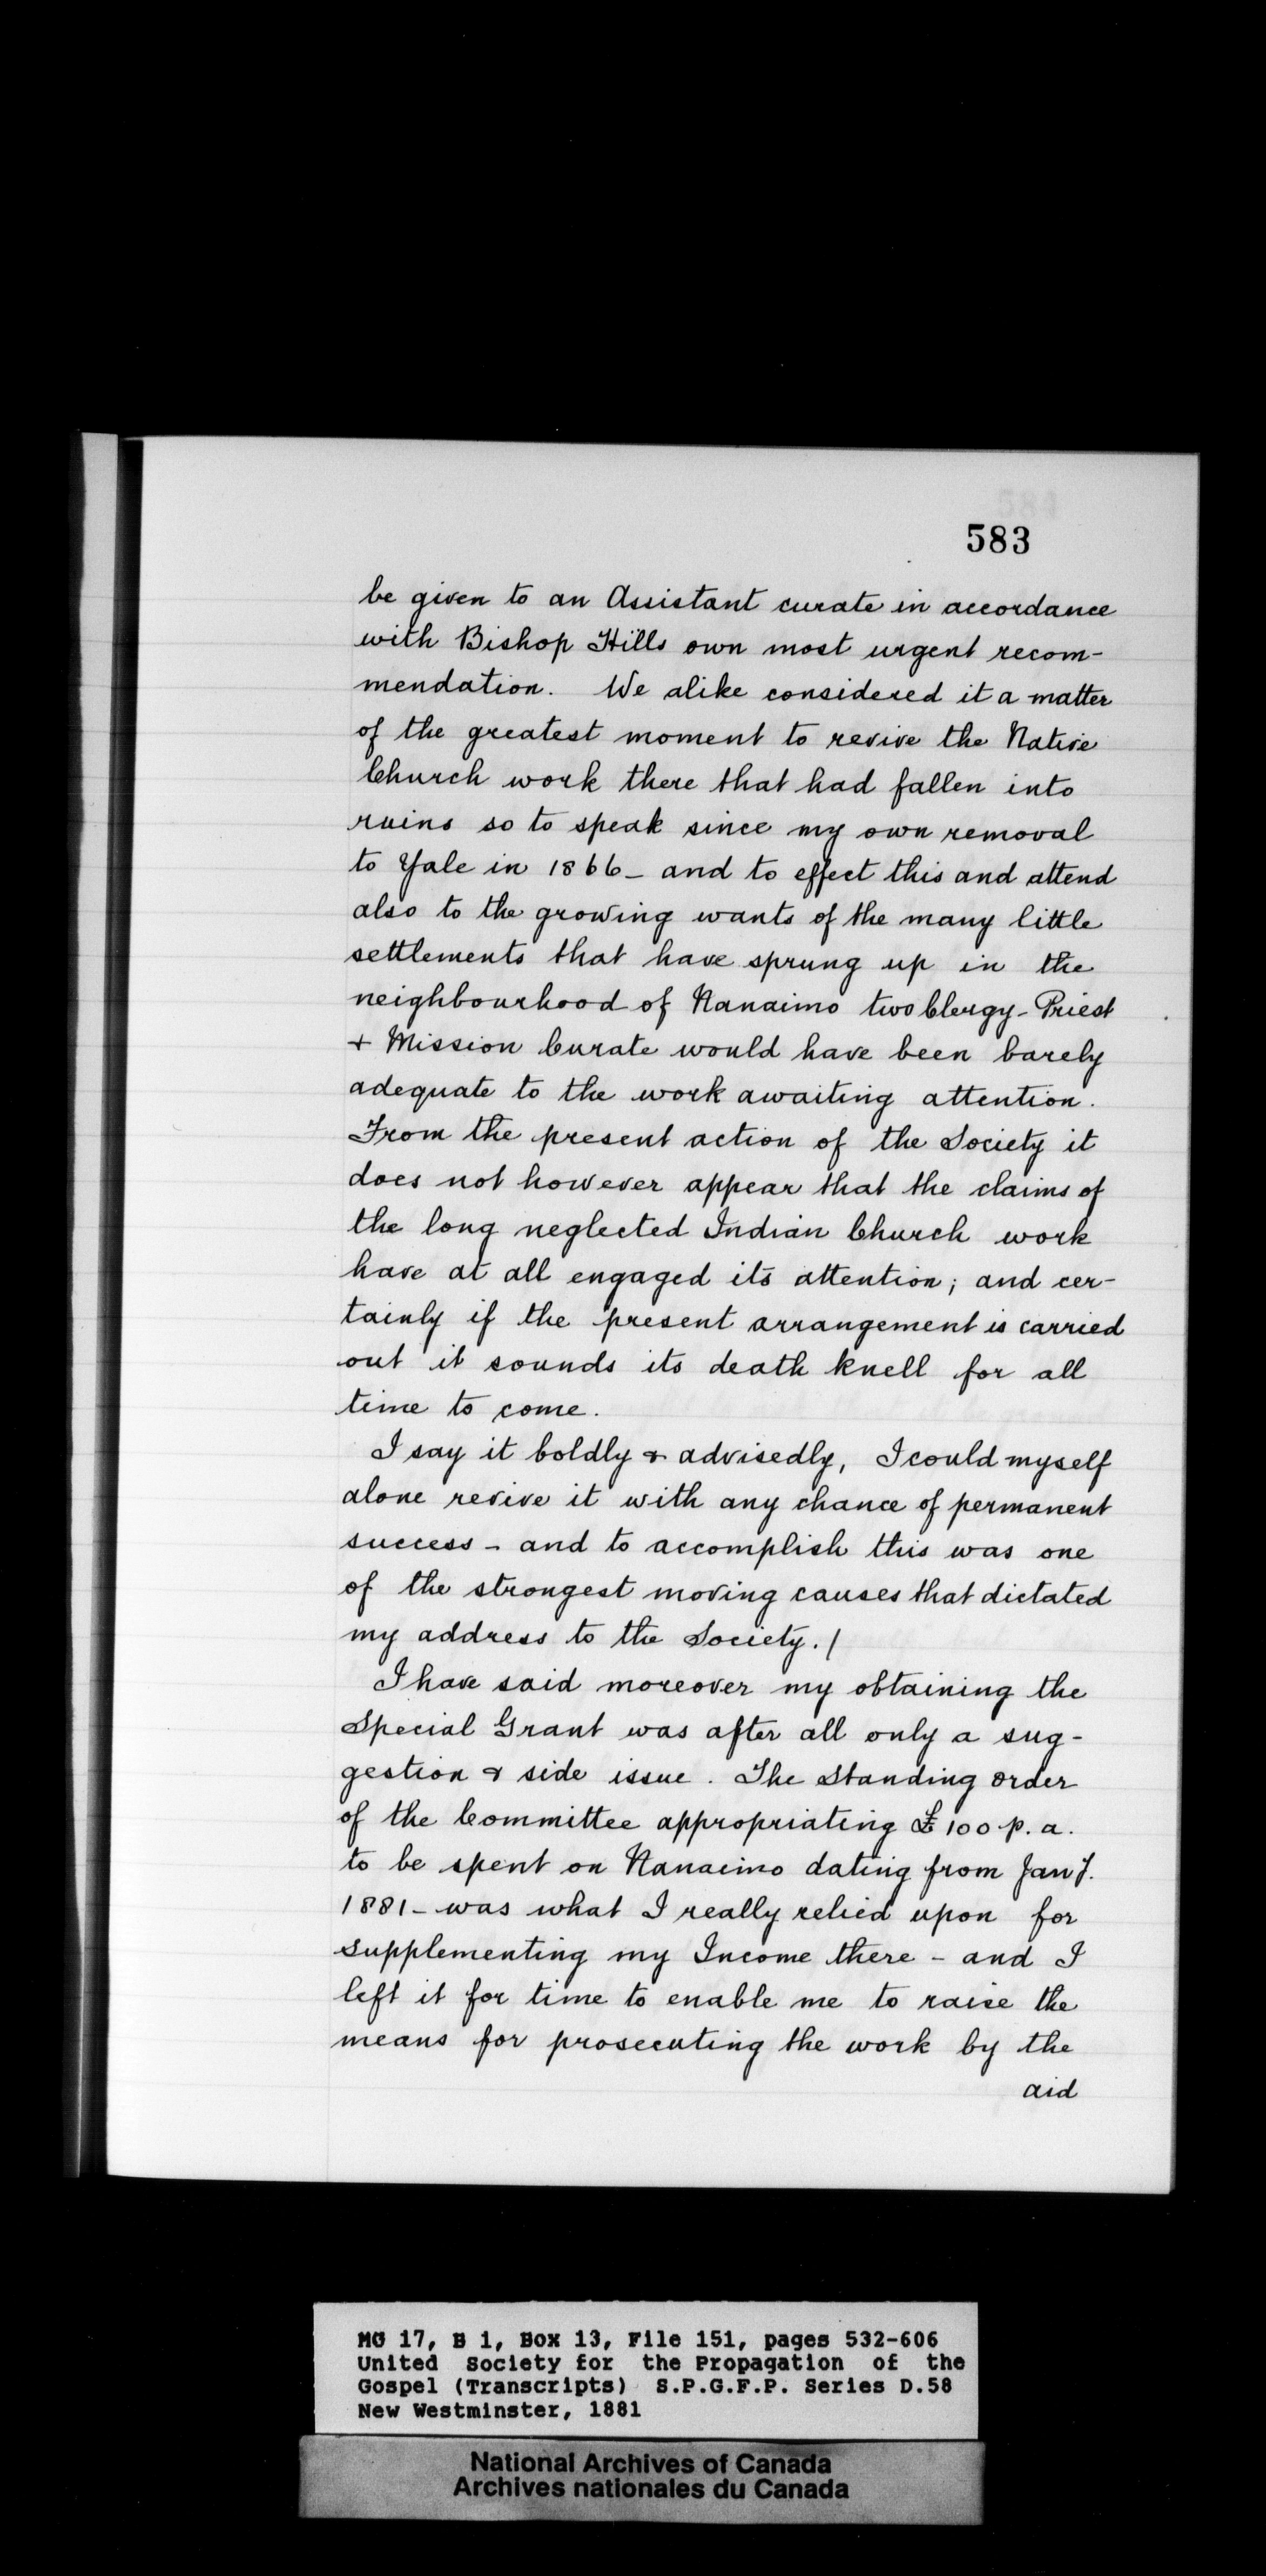 583
be given to an Assistant curate in accordance
with Bishop Hills own most urgent recom-
mendation. We alike considered it a matter
of the greatest moment to revive the Native
Church work there that had fallen into
ruins so to speak since my own removal
to Yale in 1866 - and to effect this and attend
also to the growing wants of the many little
settlements that have sprung up in the
neighbourhood of Nanaimo two Clergy - Priest
+ Mission Curate would have been barely
adequate to the work awaiting attention.
From the present action of the Society it
does not however appear that the claims of
the long neglected Indian Church work
have at all engaged its attention; and cer-
tainly if the present arrangement is carried
out it sounds its death knell for all
time to come.
I say it boldly & advisedly, I could myself
alone revive it with any chance of permanent
success - and to accomplish this was one
of the strongest moving causes that dictated
my address to the Society. /
I have said moreover my obtaining the
Special Grant was after all only a sug-
gestion & side issue. The Standing order
of the Committee appropriating £100 p.a.
to be spent on Nanaimo dating from Jany.
1881 - was what I really relied upon for
supplementing my Income there - and I
left it for time to enable me to raise the
means for prosecuting the work by the
aid
MG 17, B 1, Box 13, File 151, pages 532-606
United Society for the Propagation of the
Gospel (Transcripts) S.P.G.F.P. Series D.58
New Westminster, 1881
National Archives of Canada
Archives nationales du Canada